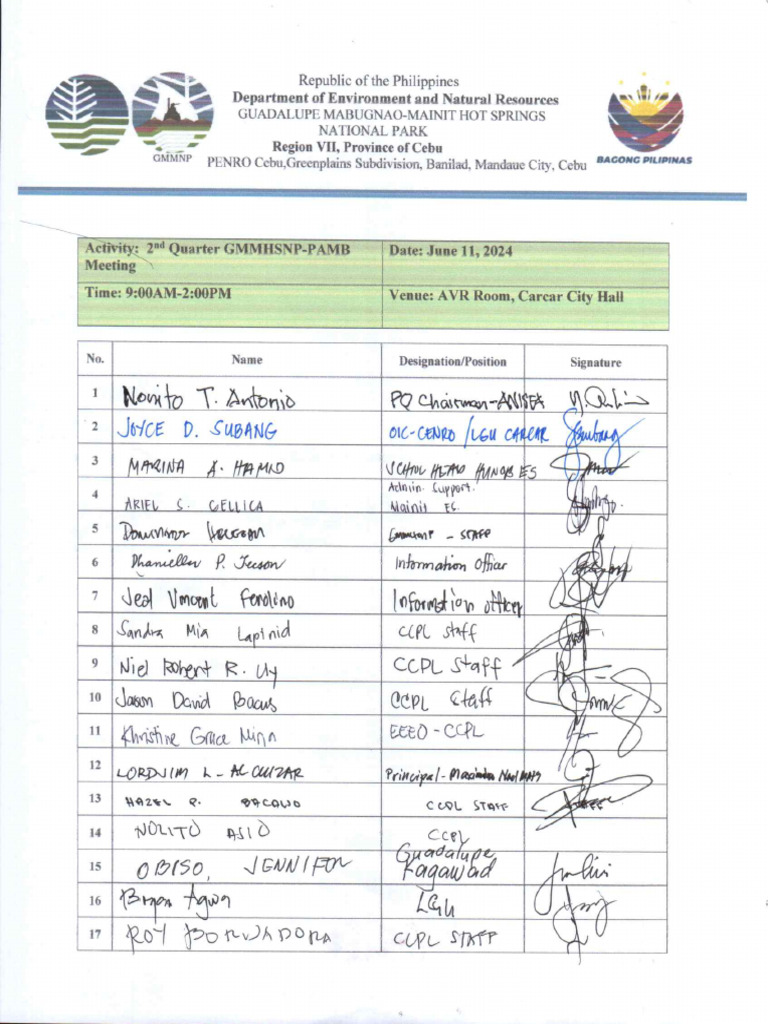 Republic of the Philippines
Department of Environment and Natural Resources
GUADALUPE MABUGNAO-MAINIT HOT SPRINGS
NATIONAL PARK
Region VII, Province of Cebu
PENRO Cebu,Greenplains Subdivision, Banilad, Mandaue City, Cebu
GMMNP
BAGONG PILIPINAS
Activity: 2nd Quarter GMMHSNP-PAMB Meeting
Date: June 11, 2024
Time: 9:00AM-2:00PM
Venue: AVR Room, Carcar City Hall
No. Name Designation/Position Signature
1 Novito T. Antonio PO Chairman-
2 JOYCE D. SUBANG OIC-CENRO /LGU CARCAR
3 MARINA A. SCHOOL HEAD ES
4 ARIEL S. GELLICA Admin. Support.
Mainit ES.
5 - STAFF
6 P. Information Officer
7 Jeol Vincent Information officer
8 Sandra Mia Lapinid CCPL staff
9 Niel Robert R. Uy CCPL Staff
10 Jason David Bacus CCPL Staff
11 Khristine Grace EEEO - CCPL
12 LORDJIM L. ALCUIZAR Principal-
13 HAZEL P. BACALSO CCPL STAFF
14 NOLITO ASIO CCPL
15 OBISO, JENNIFER Guadalupe
Kagawad
16 Bryan LGU
17 ROY CCPL STAFF